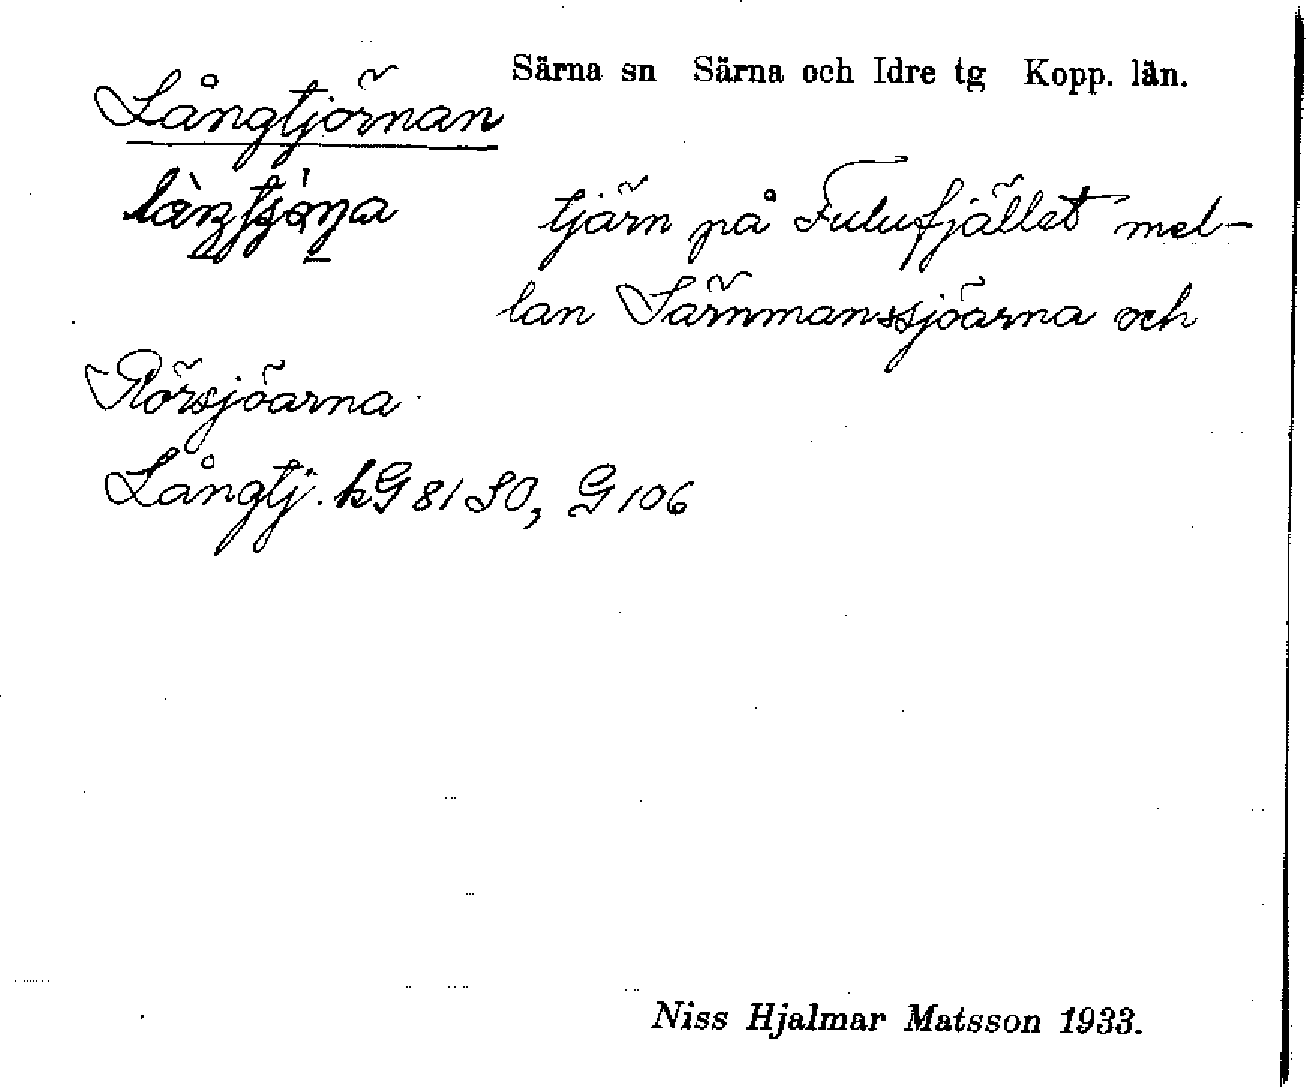 Särna sn Särna och Idre tg Kopp. län.
Långtjörnan
tjärn på Fulufjället mel-
lan Särnmanssjöarna och
Rörsjöarna
Långtj. kG 81 SO, G 106
Niss Hjalmar Matsson 1933.